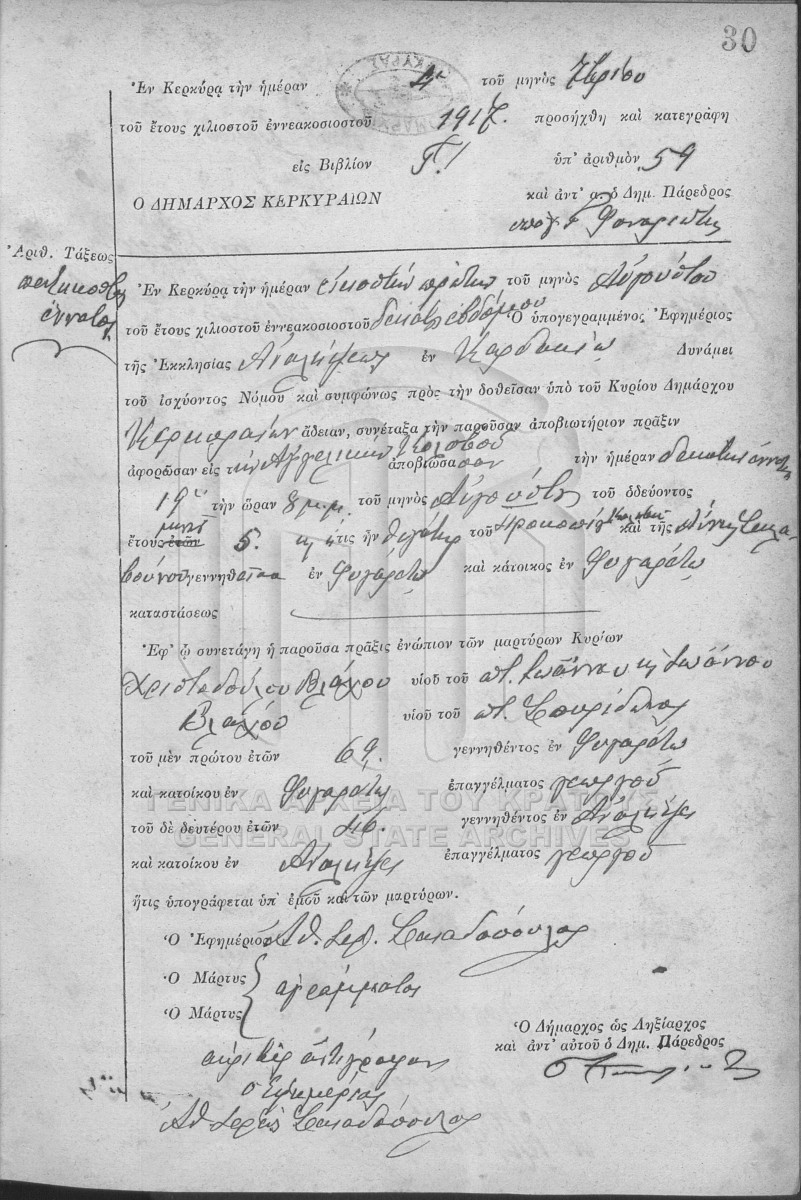 30
Ἐν Κερκύρᾳ τὴν ἡμέραν 4η τοῦ μηνὸς 7βρίου
τοῦ ἔτους χιλιοστοῦ ἐννεακοσιοστοῦ 1917. προσήχθη καὶ κατεγράφη
εἰς Βιβλίον Γ! ὑπ' ἀριθμὸν 59
Ο ΔΗΜΑΡΧΟΣ ΚΕΡΚΥΡΑΙΩΝ καὶ ἀντ' α. ὁ Δημ. Πάρεδρος
Ἀριθ. Τάξεως
Ἐν Κερκύρᾳ τὴν ἡμέραν εἰκοστὴν πρώτην τοῦ μηνὸς Αὐγούστου
τοῦ ἔτους χιλιοστοῦ ἐννεακοσιοστοῦ δεκάτου ἑβδόμου Ὁ ὑπογεγραμμένος Ἐφημέριος
τῆς Ἐκκλησίας Ἀναλήψεως ἐν Δυνάμει
τοῦ ἰσχύοντος Νόμου καὶ συμφώνως πρὸς τὴν δοθεῖσαν ὑπὸ τοῦ Κυρίου Δημάρχου
Κερκυραίων ἄδειαν, συνέταξα τὴν παροῦσαν ἀποβιωτήριον πρᾶξιν
ἀφορῶσαν εἰς τὴν Ἀγγελικὴν ἀποβιώσασαν τὴν ἡμέραν δεκάτην ἐννάτην
19ην τὴν ὥραν 8 μ.μ. τοῦ μηνὸς Αὐγούστου τοῦ ὁδεύοντος
ἔτους ἐτῶν μηνῶν 5. ἥτις ἦν θυγάτηρ τοῦ Προκοπίου καὶ τῆς
γεννηθεῖσα ἐν Φυγαρέτῳ καὶ κάτοικος ἐν Φυγαρέτῳ
καταστάσεως
Ἐφ' ᾧ συνετάγη ἡ παροῦσα πρᾶξις ἐνώπιον τῶν μαρτύρων Κυρίων
Χριστοδούλου Βλάχου υἱοῦ τοῦ ποτ. Ἰωάννου κ Ἰωάννου
Βλάχου υἱοῦ τοῦ ποτ. Σπυρίδωνος
τοῦ μὲν πρώτου ἐτῶν 69. γεννηθέντος ἐν Φυγαρέτῳ
καὶ κατοίκου ἐν Φυγαρέτῳ ἐπαγγέλματος γεωργοῦ
ΓΕΝΙΚΑ ΑΡΧΕΙΑ ΤΟΥ ΚΡΑΤΟΥΣ
τοῦ δὲ δευτέρου ἐτῶν 46. γεννηθέντος ἐν Ἀναλήψει
GENERAL STATE ARCHIVES
καὶ κατοίκου ἐν Ἀναλήψει ἐπαγγέλματος γεωργοῦ
ἥτις ὑπογράφεται ὑπ' ἐμοῦ καὶ τῶν μαρτύρων.
Ὁ Ἐφημέριος Ἀθ. Ἱερ. Σακαδόπουλος
Ὁ Μάρτυς
ἀγράμματοι
Ὁ Μάρτυς
Ὁ Δήμαρχος ὡς Ληξίαρχος
καὶ ἀντ' αὐτοῦ ὁ Δημ. Πάρεδρος
ἀκριβὲς ἀντίγραφον
ὁ Ἐφημέριος
Ἀθ Ἱερεὺς Σακαδόπουλος